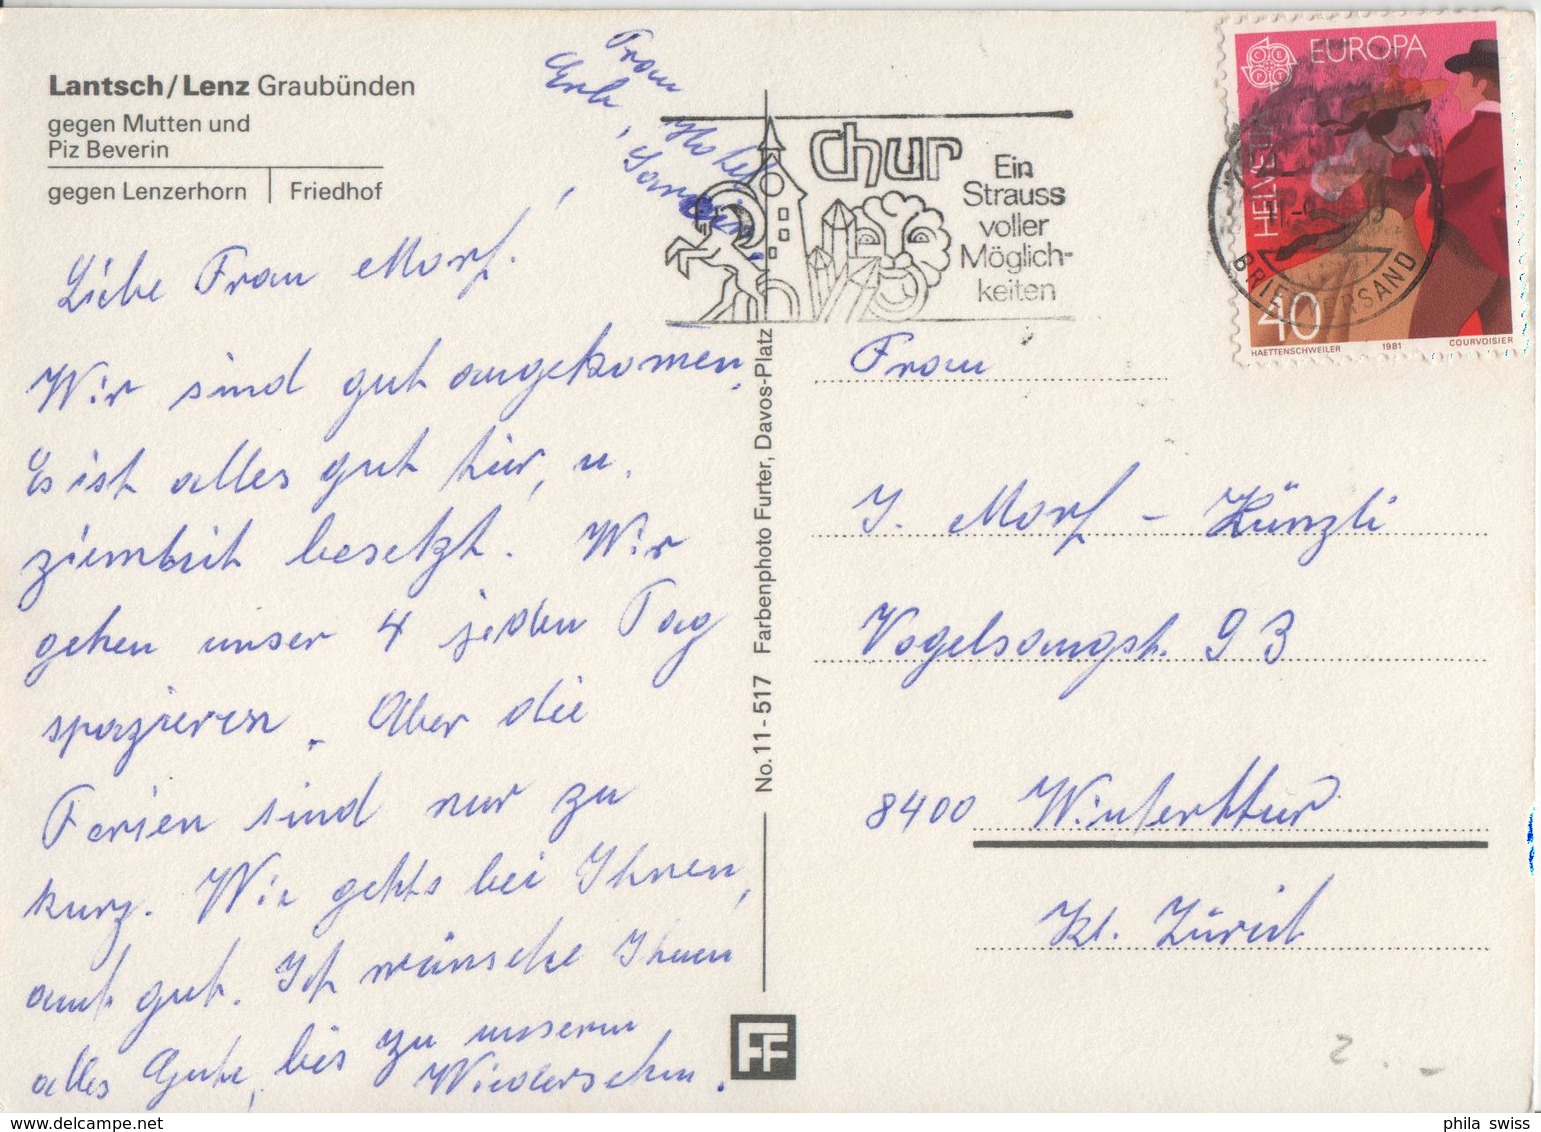 Lantsch/Lenz Graubünden
gegen Mutten und
Piz Beverin
gegen Lenzerhorn | Friedhof
Frau
Liebe Frau Morf!
Wir sind gut angekomen,
Es ist alles gut hier, u.
ziemlich besetzt. Wir
gehen unser 4 jeden Tag
spazieren. Aber die
Ferien sind nur zu
kurz. Wie gehts bei Ihnen,
auch gut. Ich wünsche Ihnen
alles Gute, bis zu unserm
Wiedersehen.
No. 11 - 517 Farbenphoto Furter, Davos-Platz
FF
chur
Ein
Strauss
voller
Möglich-
keiten
EUROPA
CEPT
HELVETIA
40
HAETTENSCHWEILER 1981 COURVOISIER
BRIEFVERSAND
Frau
J. Morf - Künzli
Vogelsangstr. 93
8400 Winterthur
Kt. Zürich
phila swiss